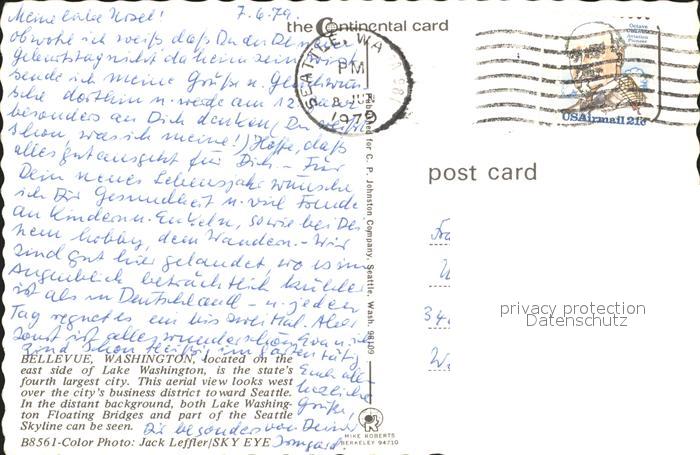 Meine liebe Ursel! 7.6.79.
obwohl ich weiß, daß Du an Deinem
Geburtstag nicht daheim sein wirst,
sende ich meine Grüße u. Glückwün-
sche dorthin u. werde am 12.
besonders an Dich denken (Du weißt
schon, was ich meine!) Hoffe, daß
alles gut ausgeht für Dich. - Für
Dein neues Lebensjahr wünsche
ich Dir Gesundheit u. viel Freude
an Kindern u. Enkeln, sowie bei Dei-
nem hobby, dem Wandern. - Wir
sind gut hier gelandet, wo es im
Augenblick beträchtlich kühler
ist als in Deutschland - u. jeden
Tag regnet es ein bis zwei Mal. Aber
sonst ist alles wunderschön. Eva u.
sind schon fleißig im Garten tätig
Euch allen
herzliche
Grüße,
Dir besonders von Deiner
Irmgard.
BELLEVUE, WASHINGTON, located on the
east side of Lake Washington, is the state's
fourth largest city. This aerial view looks west
over the city's business district toward Seattle.
In the distant background, both Lake Washing-
ton Floating Bridges and part of the Seattle
Skyline can be seen.
B8561-Color Photo: Jack Leffler/SKY EYE
the Continental card
SEATTLE, WA
PM
8 JUN
1979
Published for C. P. Johnston Company, Seattle, Wash. 98109
MIKE ROBERTS
BERKELEY 94710
Octave
Aviation Pioneer
USAirmail 21c
post card
privacy protection
Datenschutz